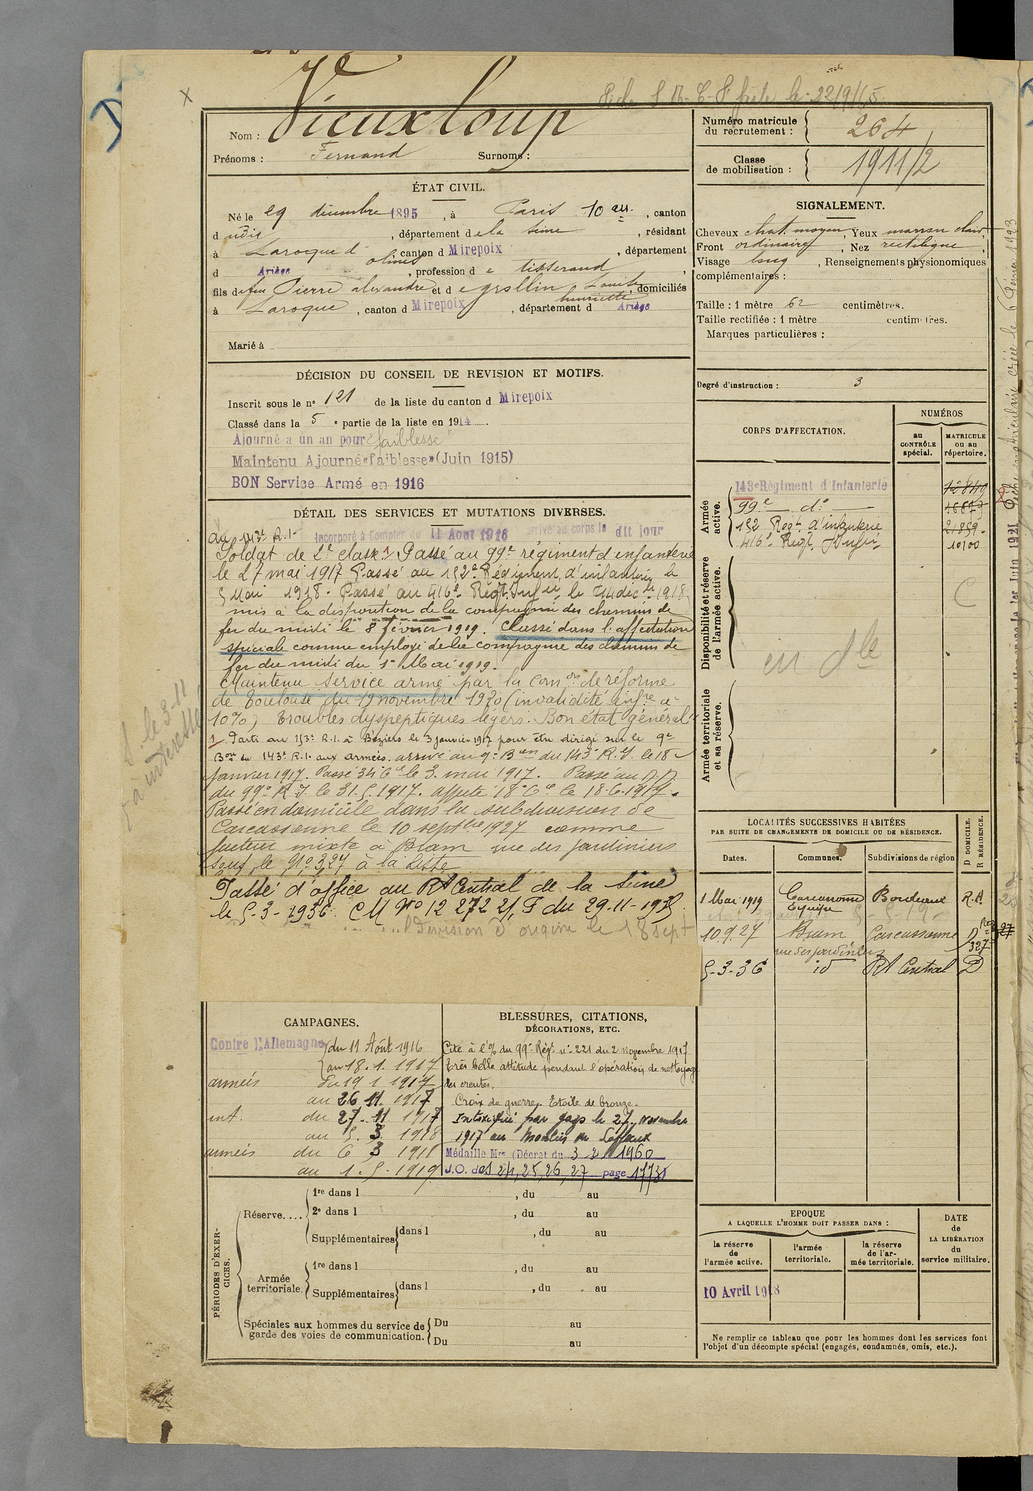 Nom : Vieuxloup
Prénoms : Fernand Surnoms :
Numéro matricule du recrutement : 264
Classe de mobilisation : 1911/2
ÉTAT CIVIL.
Né le 29 décembre 1895, à Paris 10e arr., canton
d udit, département de la Seine, résidant
à Laroque d'olmes, canton d Mirepoix, département
d Ariège, profession de tisserand,
fils de feu Pierre alexandre et de Louise henriette, domiciliés
à Laroque, canton d Mirepoix, département d Ariège
Marié à
SIGNALEMENT.
Cheveux chat. moyen, Yeux marron clair,
Front ordinaire, Nez rectiligne,
Visage long, Renseignements physionomiques
complémentaires :
Taille : 1 mètre 62 centimètres.
Taille rectifiée : 1 mètre centimètres.
Marques particulières :
Degré d'instruction : 3
DÉCISION DU CONSEIL DE REVISION ET MOTIFS.
Inscrit sous le n° 121 de la liste du canton d Mirepoix
Classé dans la 5e partie de la liste en 1914
Ajourné à un an pour faiblesse
Maintenu Ajourné «faiblesse» (Juin 1915)
BON Service Armé en 1916
CORPS D'AFFECTATION.
NUMÉROS
au CONTRÔLE spécial.
MATRICULE ou au répertoire.
Armée active.
143e Régiment d'Infanterie
99e d°
152 Régt. d'infanterie
416e Régt. Infie 10100
Disponibilité et réserve de l'armée active.
Armée territoriale et sa réserve.
DÉTAIL DES SERVICES ET MUTATIONS DIVERSES.
Au 143e R.I. Incorporé à Compter du 11 Août 1916 arrivé au corps le dit jour
Soldat de 2e classe. Passé au 99e régiment d'infanterie
le 27 mai 1917 Passé au 152e Régiment d'infanterie le
5 Mai 1918. Passé au 416e Régt. Infie le 24 déc. 1918
mis à la disposition de la compagnie des chemins de
fer du midi le 8 février 1919. Classé dans l'affectation
spéciale comme employé de la compagnie des chemins de
fer du midi du 1er Mai 1919.
Maintenu service armé par la Comon de réforme
de Toulouse du 19 novembre 1920 (invalidité infre à
10%) Troubles dyspeptiques légers. Bon état général
Parti au 153e R.I. à Béziers le 3 janvier 1917 pour être dirigé sur le 9e
Bon du 143e R.I. aux armées. arrivé au 9e Bon du 143e R.I. le 18
Janvier 1917. Passé 34e Cie le 3 mai 1917. Passé au DD
du 99e R.I. le 31.5.1917. affecté 18e Cie le 18.6.1917.
Passé en domicile dans la subdivision de
Carcassonne le 10 septbre 1927 comme
facteur mixte à Bram rue des Jardiniers
sous le N° 327 à la liste
Passé d'office au RA Central de la Seine
le 5-3-1936. CM No 12 272 21, F du 29-11-1935
LOCALITÉS SUCCESSIVES HABITÉES
PAR SUITE DE CHANGEMENTS DE DOMICILE OU DE RÉSIDENCE.
Dates. Communes. Subdivisions de région. D DOMICILE. R RÉSIDENCE.
1 Mai 1919 Carcassonne Equipe Bordeaux R.A.
10.9.27 Bram rue des jardiniers Carcassonne D 327
5-3-36 id RA Central D
CAMPAGNES.
Contre l'Allemagne du 11 Août 1916
au 18.1.1917
armées du 19 1 1917
au 26 11. 1917
int. du 27 11 1917
au 5 3 1918
armées du 6 3 1918
au 1.5.1919
BLESSURES, CITATIONS, DÉCORATIONS, ETC.
Cité à l'O/ du 99e Régt n° 221 du 2 Novembre 1917.
Très belle attitude pendant l'opération de nettoyage
des creutes.
Croix de guerre. Etoile de bronze.
Intoxiqué par gaz le 27 novembre
1917 au Moulin de Laffaux
Médaille Mre (Décret du 3 2 1960
J.O. des 24, 25, 26, 27 page 1773)
PÉRIODES D'EXERCICES.
Réserve....
1re dans l , du au
2e dans l , du au
Supplémentaires dans l , du au
Armée territoriale.
1re dans l , du au
Supplémentaires dans l , du au
Spéciales aux hommes du service de garde des voies de communication. Du au
Du au
EPOQUE
A LAQUELLE L'HOMME DOIT PASSER DANS :
la réserve de l'armée active. l'armée territoriale. la réserve de l'armée territoriale.
DATE de LA LIBÉRATION du service militaire.
10 Avril 1918
Ne remplir ce tableau que pour les hommes dont les services font
l'objet d'un décompte spécial (engagés, condamnés, omis, etc.).